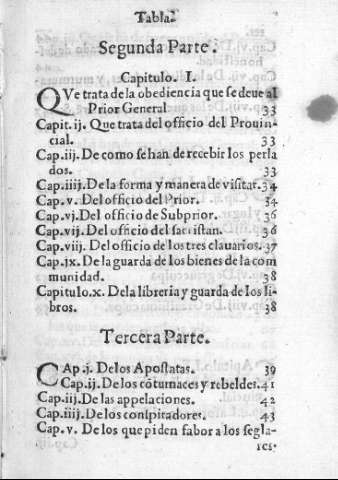 Tabla.
Segunda Parte.
Capitulo. I.
QVe trata de la obediencia que se deue al
Prior General 33
Capit. ij. Que trata del officio del Prouin-
cial. 33
Cap.iij. De como se han de recebir los perla
dos. 33
Cap.iiij. De la forma y manera de visitar. 34
Cap.v. Del officio del Prior. 34
Cap.vj. Del officio de Subprior. 36
Cap.vij. Del officio del sacristan. 36
Cap.viij. Del officio de los tres clauarios. 37
Cap.jx. De la guarda de los bienes de la com
munidad. 38
Capitulo.x. De la libreria y guarda de los li-
bros. 38
Tercera Parte.
CAp.j. De los Apostatas. 39
Cap.ij. De los cõtumaces y rebeldes. 41
Cap.iij. De las appelaciones. 42
Cap.iiij. De los conspiradores. 43
Cap.v. De los que piden fabor a los segla-
res.